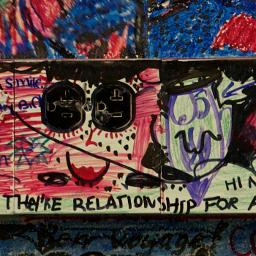 Smile
HI
THEY'RE RELATIONSHIP FOR A
Bon Voyage!